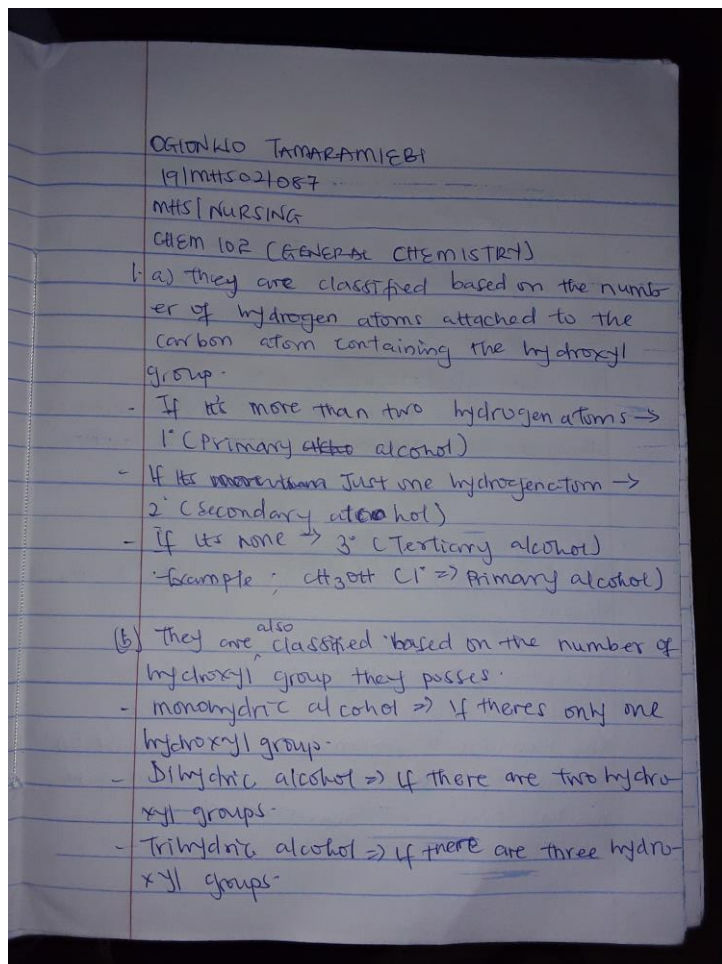 OGIONKIO TAMARAMIEBI
19/MHS02/087
MHS/NURSING
CHEM 102 (GENERAL CHEMISTRY)
1. a) they are classified based on the numb-
er of hydrogen atoms attached to the
carbon atom containing the hydroxyl
group.
- If it's more than two hydrogen atoms →
1° (Primary alcohol)
- If its Just one hydrogen atom →
2° (Secondary alcohol)
- If its none → 3° (Tertiary alcohol)
Example; CH3OH (1° => Primary alcohol)
(b) they are also classified based on the number of
hydroxyl group they posses.
- monohydric alcohol => if theres only one
hydroxyl group-
- Dihydric alcohol => if there are two hydro-
xyl groups-
- Trihydric alcohol => if there are three hydro-
xyl groups-